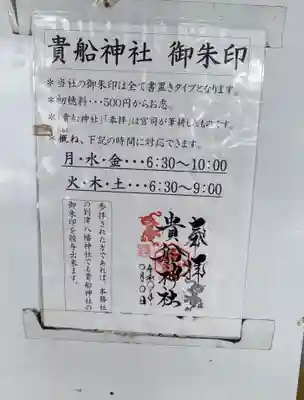 貴船神社 御朱印
＊当社の御朱印は全て書置きタイプとなります。
＊初穂料・・・500円からお志。
＊「貴船神社」「奉拝」は宮司が筆耕したものです。
＊概ね、下記の時間に対応できます。
月・水・金・・・6:30～10:00
火・木・土・・・6:30～9:00
参拝された方であれば、本務社
の別津八幡神社でも貴船神社の
御朱印を授与出来ます。
奉拝
貴船神社